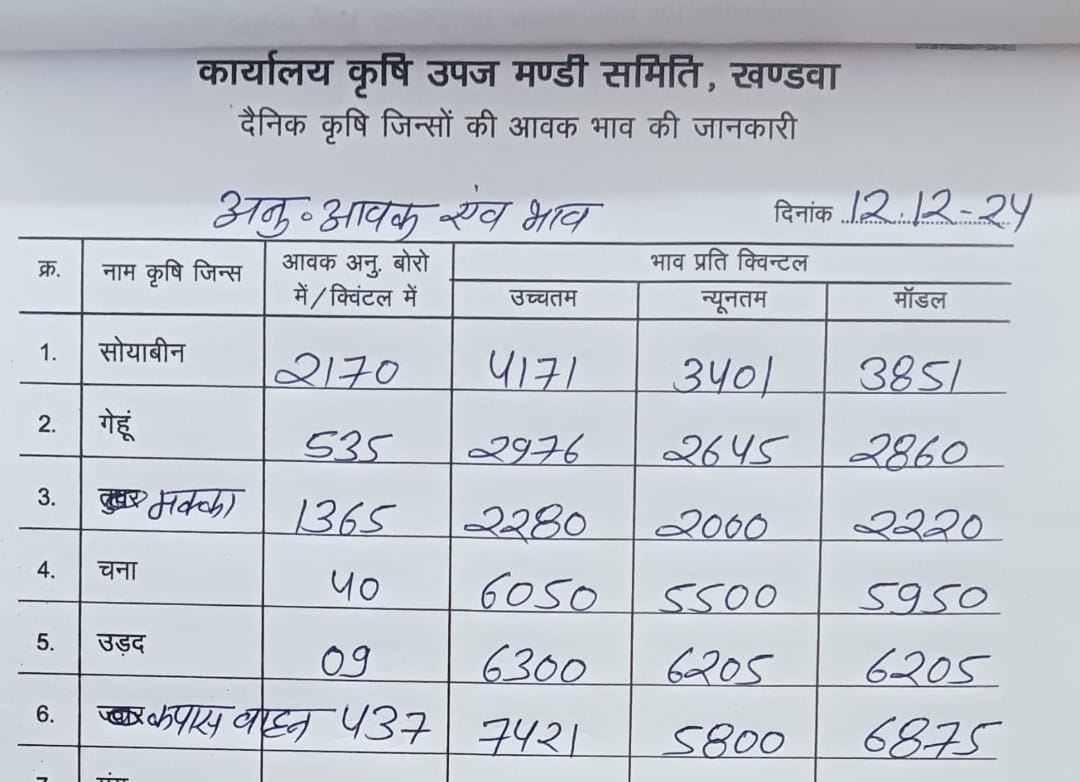 कार्यालय कृषि उपज मण्डी समिति, खण्डवा
दैनिक कृषि जिन्सों की आवक भाव की जानकारी
अनु॰ आवक एंव भाव दिनांक 12.12-24
क्र. नाम कृषि जिन्स आवक अनु. बोरो में/क्विंटल में भाव प्रति क्विन्टल
उच्चतम न्यूनतम मॉडल
1. सोयाबीन 2170 4171 3401 3851
2. गेहूं 535 2976 2645 2860
3. मक्का 1365 2280 2000 2220
4. चना 40 6050 5500 5950
5. उड़द 09 6300 6205 6205
6. कपास वाहन 437 7421 5800 6875